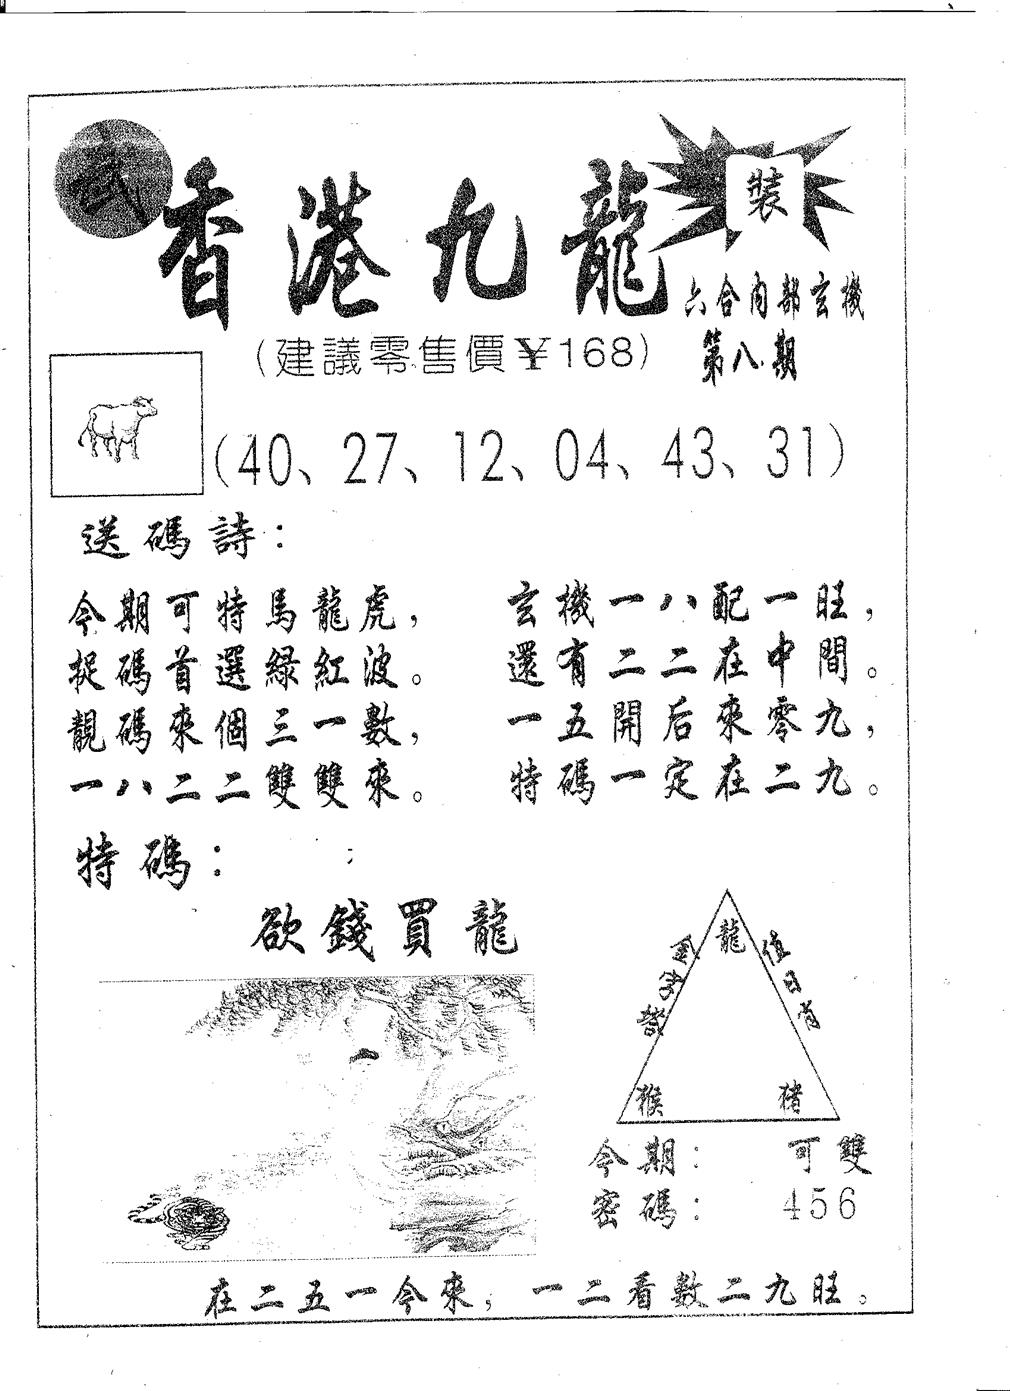 武
香港九龍
裝
六合内部玄機
第八期
(建議零售價¥168)
(40、27、12、04、43、31)
送碼詩：
今期可特馬龍虎，
捉碼首選綠紅波。
靚碼來個三一數，
一八二二雙雙來。
玄機一八配一旺，
還有二二在中間。
一五開后來零九，
特碼一定在二九。
特碼：
欲錢買龍
龍
值日肖
猴
猪
今期： 可雙
密碼： 456
在二五一今來，一二看數二九旺。